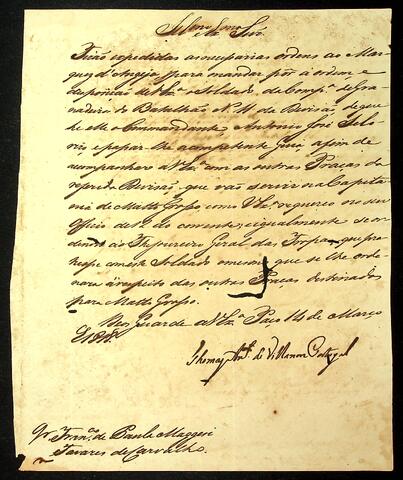 Illmo e Exmo Snr.
Ficão expedidas as necessarias ordens ao Marquez d'Angeja para mandar pôr á ordem e
disposição de V. Exa o Soldado da Compa de Granadeiros do Batalhão No 11 da Divisão, de que
he elle Commandante Antonio José
e passar-lhe a competente Guia, afim de
acompanhar a V. Exa com as outras Praças da
referida Divisão, que vão servir na Capitania de Matto Grosso, como V. Exa requereo no seu
Officio de 10 do corrente; e igualmente se ordena ao Thesoureiro Geral das Tropas, que pratique com este Soldado o mesmo que se lhe ordenara a respeito das outras Praças destinadas
para Matto Grosso.
Deos Guarde a V. Exa Paço 14 de Março
de 1818.
Thomaz Anto de Villanova Portugal
Snr Franco de Paula Maggesi
Tavares de Carvalho.